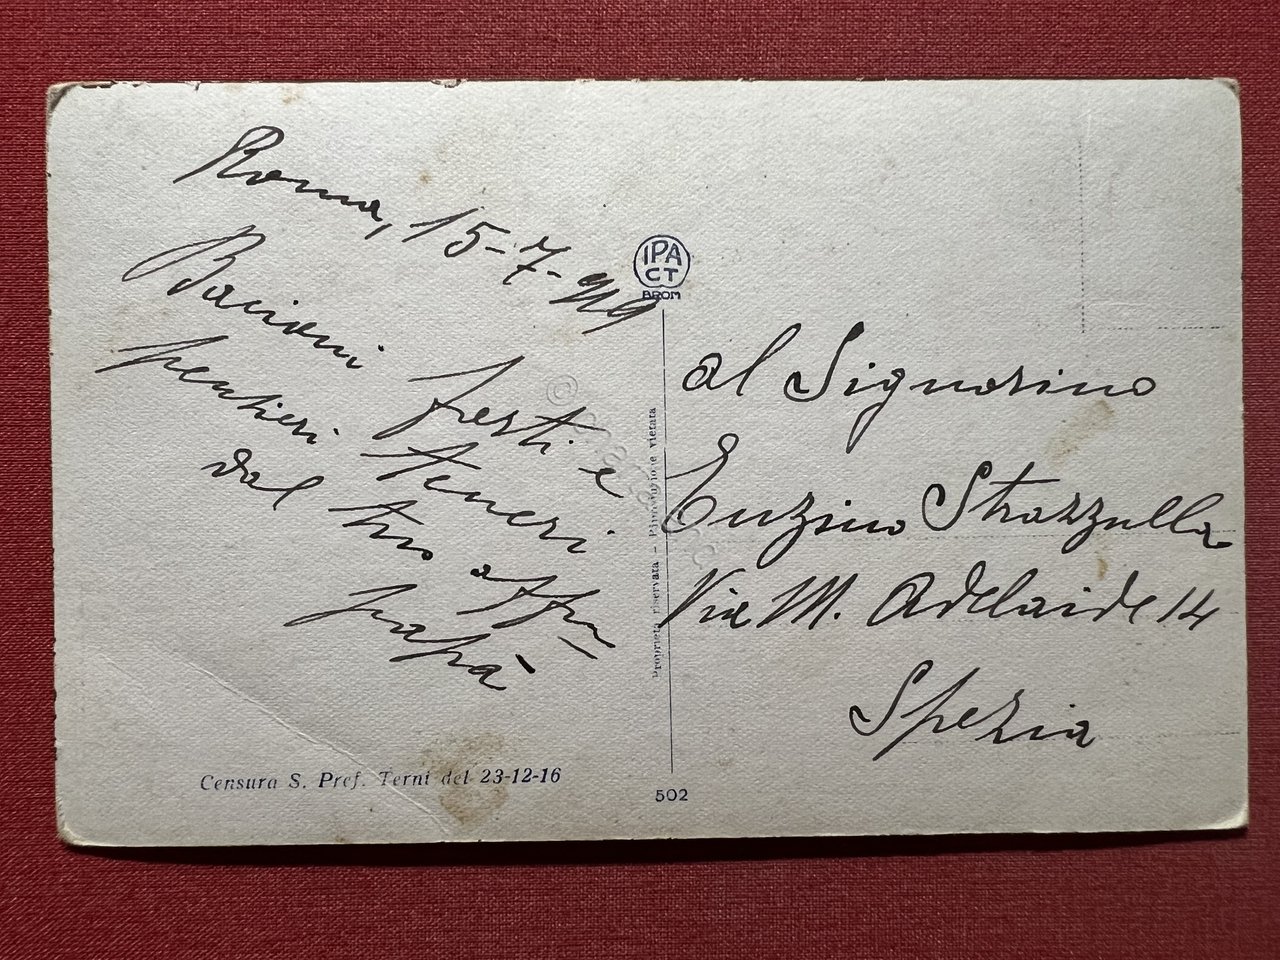 Roma, 15-7-919
Bacioni forti e
pensieri teneri
dal tuo affmo
papà
Censura S. Pref. Terni del 23-12-16
IPA
CT
BROM
Proprietà riservata - Riproduzione vietata
502
al Signorino
Enzino Strazzulla
Via M. Adelaide 14
Spezia